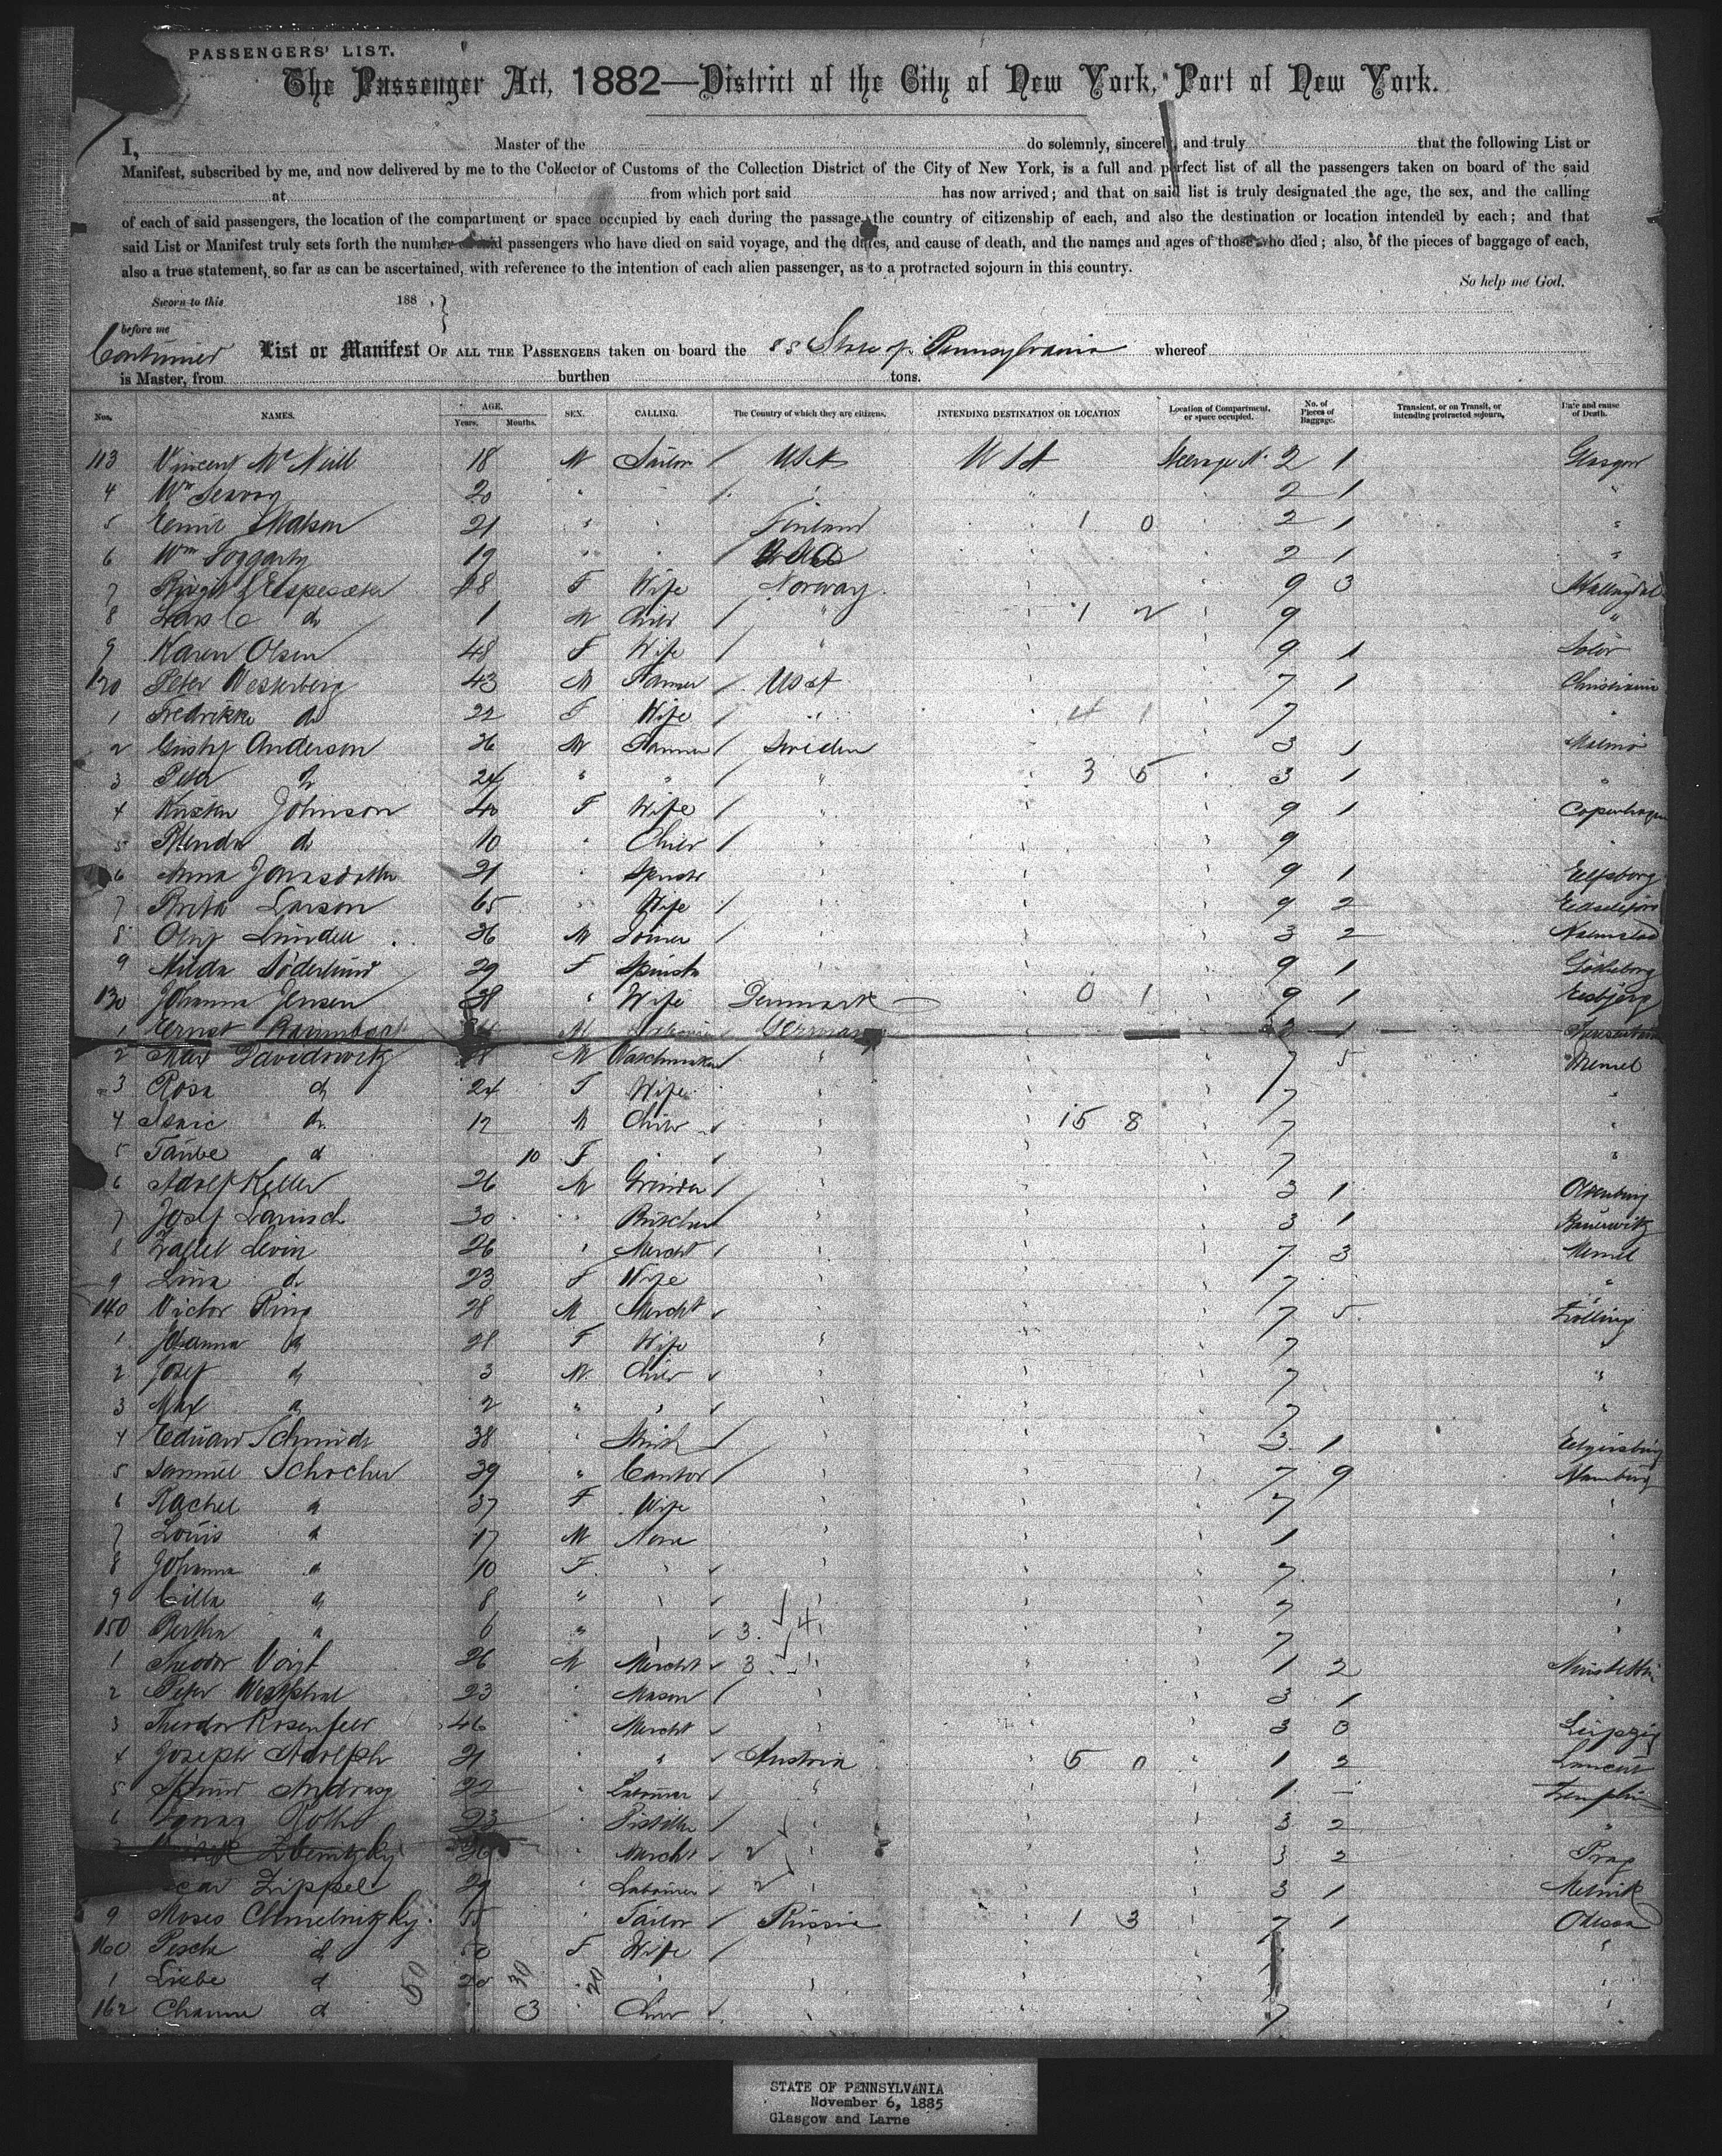 PASSENGERS' LIST.
The Passenger Act, 1882—District of the City of New York, Port of New York.
I, Master of the do solemnly, sincerely, and truly that the following List or
Manifest, subscribed by me, and now delivered by me to the Collector of Customs of the Collection District of the City of New York, is a full and perfect list of all the passengers taken on board of the said
at from which port said has now arrived; and that on said list is truly designated the age, the sex, and the calling
of each of said passengers, the location of the compartment or space occupied by each during the passage, the country of citizenship of each, and also the destination or location intended by each; and that
said List or Manifest truly sets forth the number of said passengers who have died on said voyage, and the dates, and cause of death, and the names and ages of those who died; also, of the pieces of baggage of each,
also a true statement, so far as can be ascertained, with reference to the intention of each alien passenger, as to a protracted sojourn in this country.
So help me God.
Sworn to this 188 , }
before me
Continued List or Manifest OF ALL THE PASSENGERS taken on board the SS State of Pennsylvania whereof
is Master, from burthen tons.
Nos. NAMES. AGE. Years. Months. SEX. CALLING. The Country of which they are citizens. INTENDING DESTINATION OR LOCATION Location of Compartment, or space occupied. No. of Pieces of Baggage. Transient, or on Transit, or intending protracted sojourn. Date and cause of Death.
113 Vincent McNeill 18 M Sailor / USA USA Steerage N. 2 1 Glasgow
4 Wm 20 " / 2 1 "
5 21 " Finland 1 0 2 1 "
6 Wm Foggarty 19 " / USA 2 1 "
7 F Wife Norway 9 3
8 Lars do 1 M Child / " 1 2 9 "
9 Karen Olsen 48 F Wife / " 9 1 Solör
120 Peter Westerberg 43 M Farmer / USA 7 1 Christiania
1 Fredrikke do 22 F Wife / " 4 1 7 "
2 Gustaf Anderson 36 M Farmer / Sweden 3 1 Malmö
3 Peter do 24 " " / " 3 5 3 1 "
4 Johnson 40 F Wife / " 9 1 Copenhagen
5 do 10 " Child / " 9 "
6 Anna Jonasdotter 21 " Spinstr " 9 1 Elfsborg
7 Brita Larson 65 " Wife / " 9 2
8 Olof Lundell 36 M Joiner / " 3 2 Halmstad
9 Hilda Söderlund 29 F Spinstr " 9 1 Götheborg
130 Johanna Jensen 38 " Wife Denmark 0 1 9 1 Esbjerg
1 Ernst M Germany 1
2 Max Davidowitz M / " 7 5 Memel
3 Rosa do 24 F Wife " 7 "
4 Isaac do 12 M Child " 15 8 7 "
5 Taube do 10 F " 7 "
6 Adolf Keller 26 M Grinder / " 3 1
7 Josef 30 " Butcher " 3 1 Bauerwitz
8 Levin 26 " Mercht / " 7 3 Memel
9 Lina do 23 F Wife " 7 "
140 Victor Ring 28 M Mercht " 7 5
1 Johanna do 28 F Wife " 7 "
2 Josef do 3 M Child " 7 "
3 Max do 2 " " " 7 "
4 Eduard Schmidt 38 " Smith / " 3 1 Elgersburg
5 Samuel Schocher 39 " Cantor / " 7 9 Hamburg
6 Rachel do 37 F Wife " 7 "
7 Louis do 17 M None " 1 "
8 Johanna do 10 F " " 7 "
9 Cilla do 8 " " " 7 "
150 Bertha do 6 " " 3 4 7 "
1 Theodor Voigt 26 M Mercht 3 " 1 2 Neustettin
2 Peter Westphal 23 " Mason / " 3 1 "
3 Theodor Rosenfeld 46 " Mercht " 3 3 Leipzig
4 Joseph Adolph 21 " " Austria 5 0 1 2 Lancut
5 Andrasy 22 " Labourer " 1 – Zemplin
6 Ignaz Roth 23 " Distiller / " 3 2 "
7 26 " Mercht 2 " 3 2 Prag
Zippel 29 " Labourer 2 " 3 1 Melnik
9 Moses Chmelnitzky " Tailor / Russia 1 3 7 1 Odessa
160 Pescha do 50 F Wife / " "
1 Liebe do 20 " " " "
50 30 20
162 Channe do 3 Child " 7 "
STATE OF PENNSYLVANIA
November 6, 1885
Glasgow and Larne